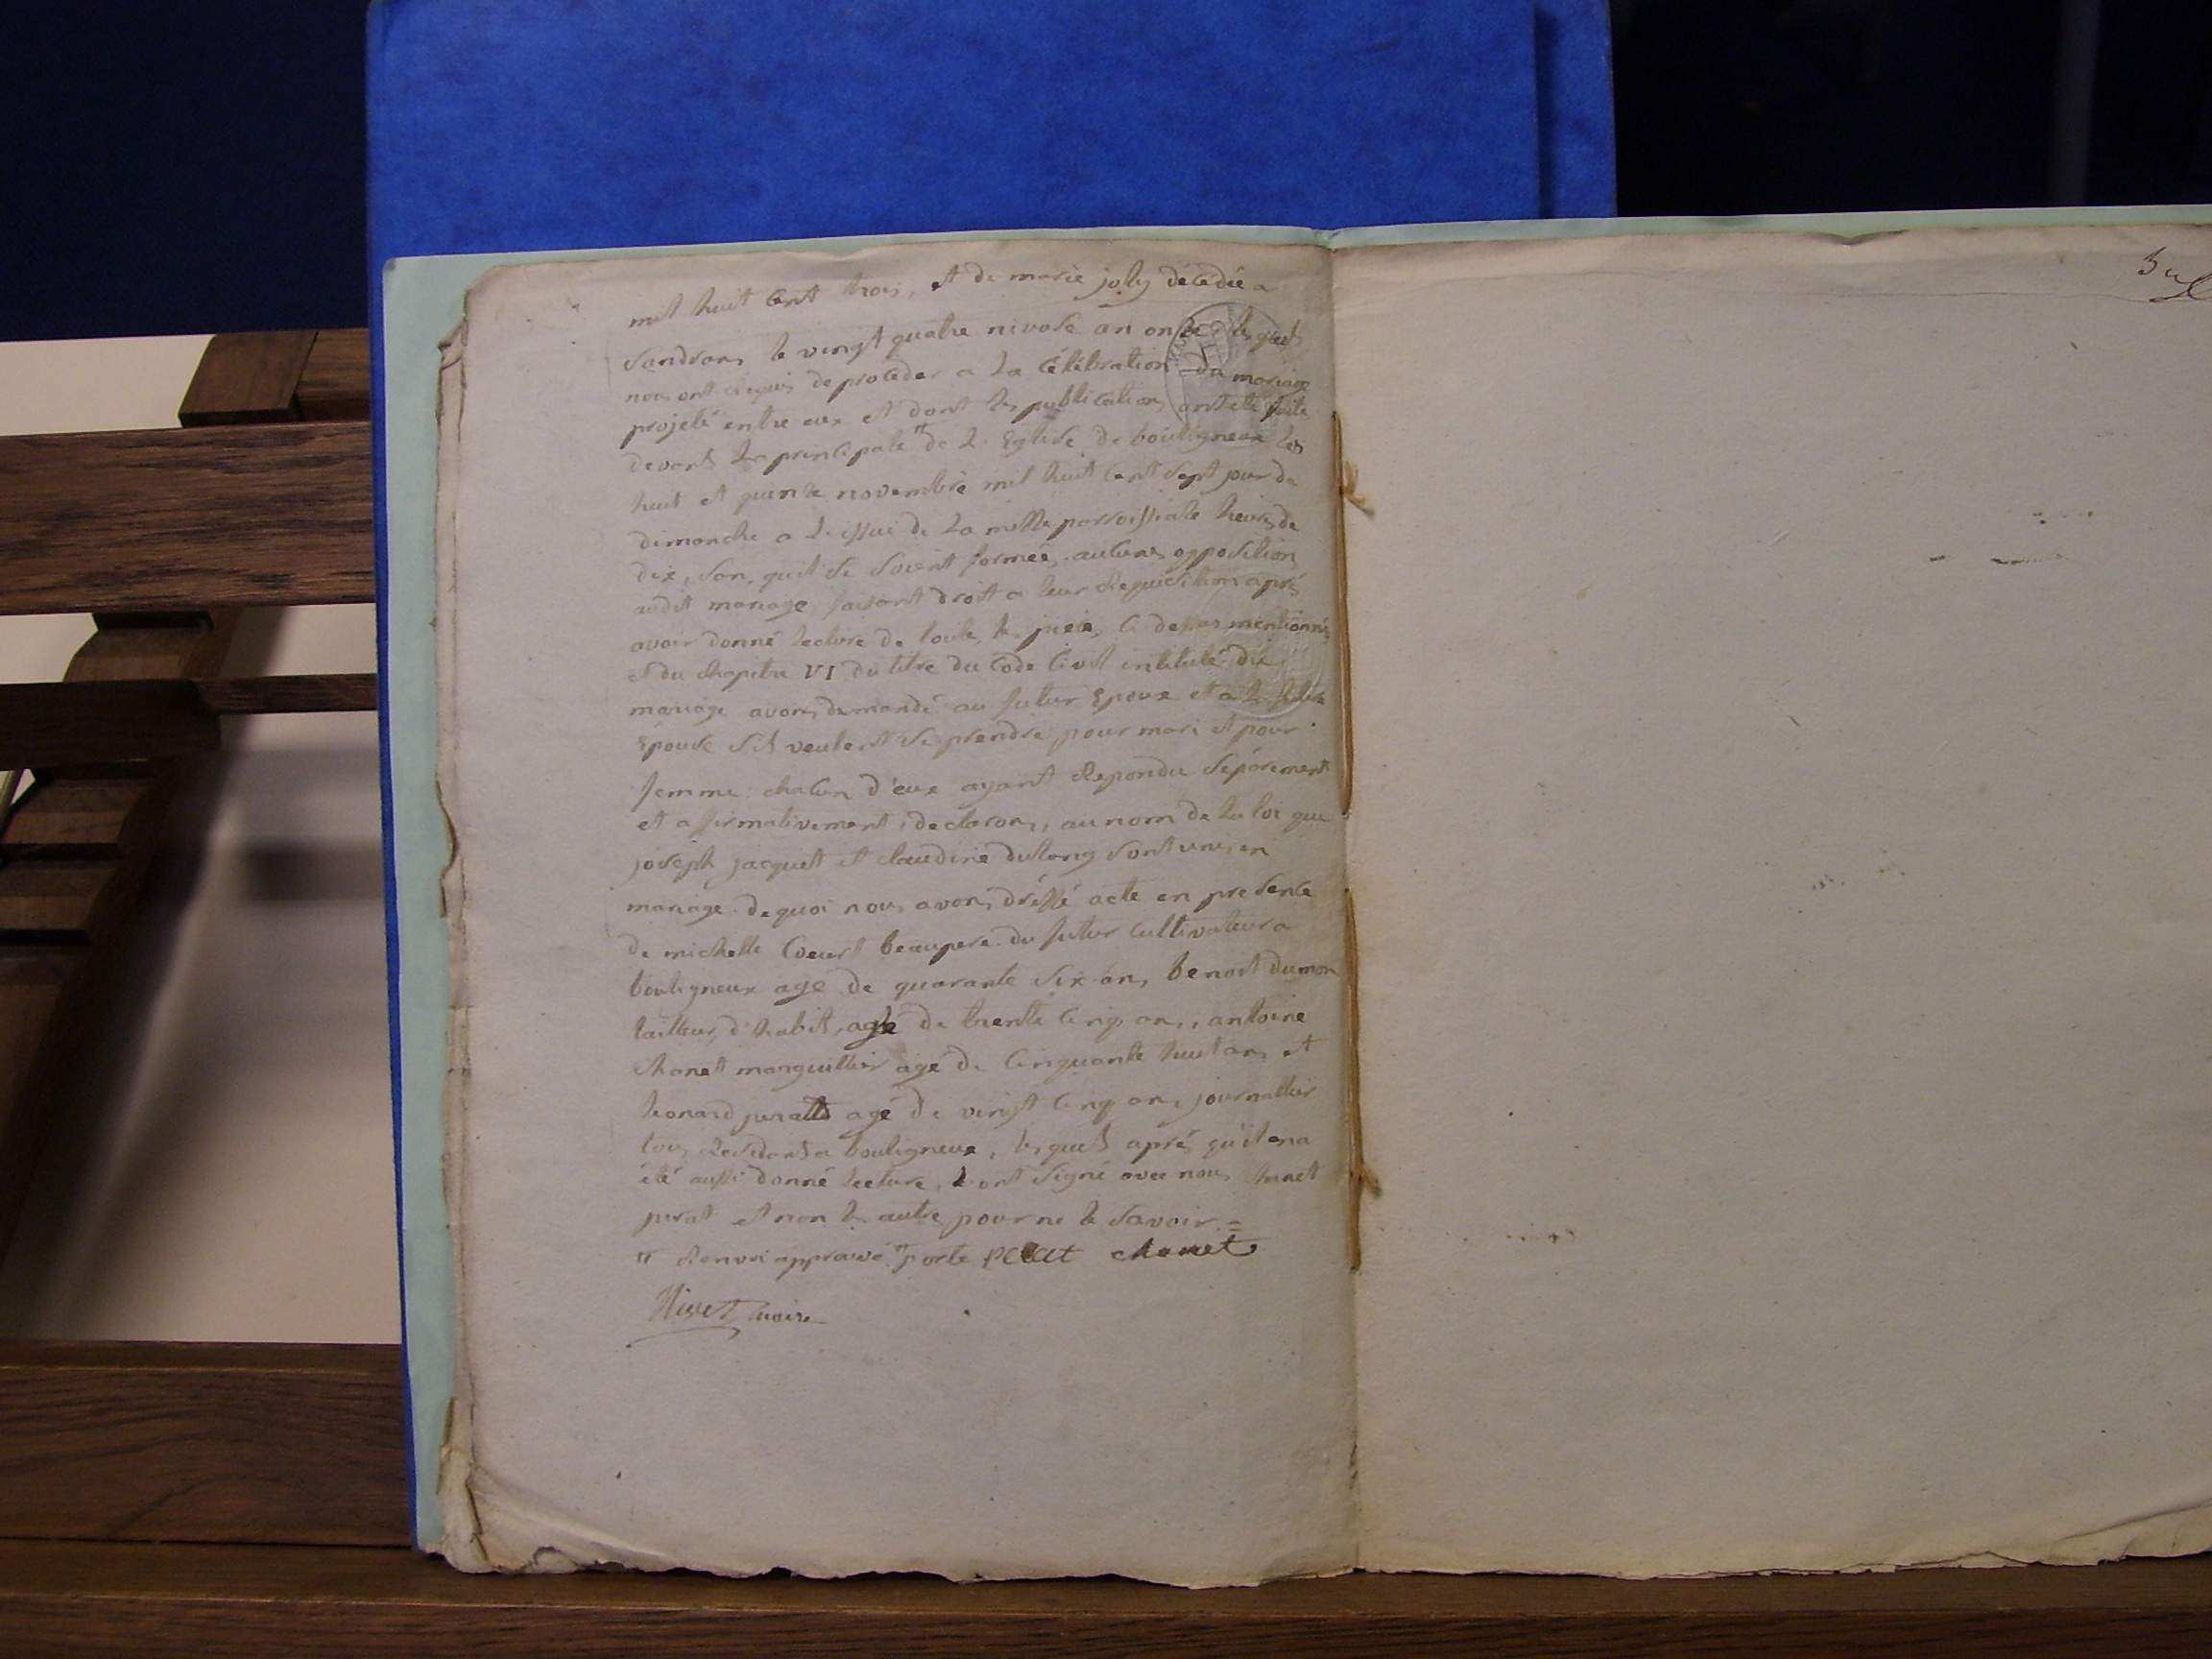 mil huit cent trois, et de marie joly décédée a
Sandrans le vingt quatre nivose an onze, lesquels
nous ont requis de proceder a la célébration du mariage
projeté entre eux et dont les publications ont été faite
devant la principale " de l'Eglise de bouligneux les
huit et quinze novembre mil huit cent sept jour de
dimanche a l'issue de la messe parroissiale heures de
dix, sans quil se soient formées aucunes opposition
audit mariage faisant droit a leur requisition après
avoir donné lecture de toute les pieces ci dessus mentionnés
et du chapitre VI du titre du Code Civil intitulé du
mariage avons demandé au futur Epoux et a la future
Epouse s'il veulent se prendre pour mari et pour
femme chacun d'eux ayant repondu séparement
et affirmativement, declarons, au nom de la loi que
joseph jacquet et claudine dulong sont unis en
mariage de quoi nous avons dréssé acte en presence
de michelle Coeurt beaupere du futur cultivateur a
bouligneux age de quarante six ans, benoit dumon
tailleur d'habit, agé de trente cinq ans, antoine
chanet manguillier agé de cinquante huit ans et
leonard perat agé de vingt cinq ans, journallier
tous residants a bouligneux, lesquels après qu'il en a
été aussi donné lecture, l'ont signé avec nous chanet
perat et non les autre pour ne le savoir =
" Renvoi approuvé " porte perat chanet
Nivet maire